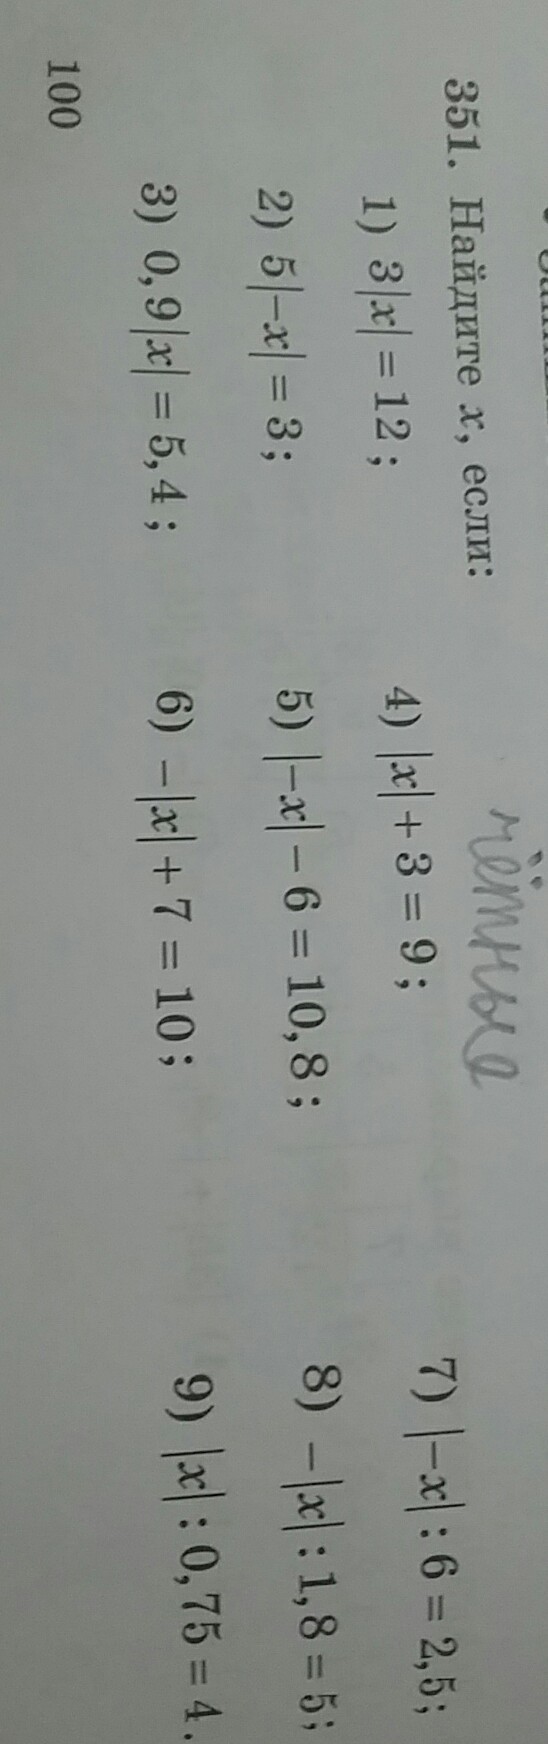 351. Найдите x, если: чётные
1) 3|x| = 12; 4) |x| + 3 = 9; 7) |−x| : 6 = 2,5;
2) 5|−x| = 3; 5) |−x| − 6 = 10,8; 8) −|x| : 1,8 = 5;
3) 0,9|x| = 5,4; 6) −|x| + 7 = 10; 9) |x| : 0,75 = 4.
100